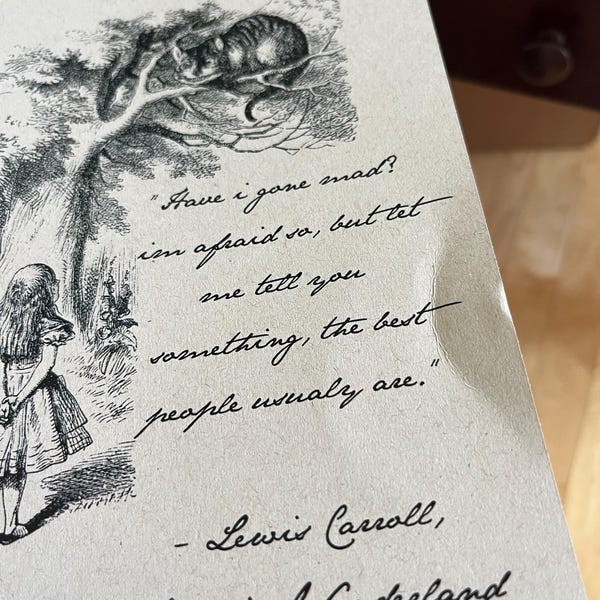 "Have i gone mad?
im afraid so, but let
me tell you
something, the best
people usualy are."
- Lewis Carroll,